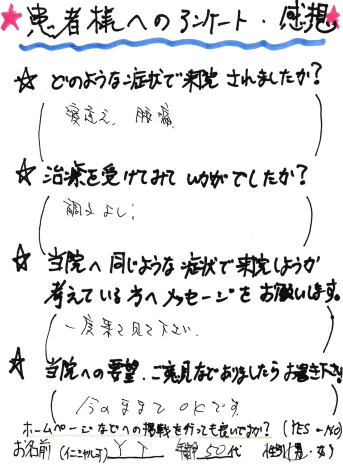 患者様へのアンケート・感想
☆ どのような症状で来院されましたか?
寝違え、腰痛
☆ 治療を受けてみていかがでしたか?
調子よし!
☆ 当院へ同じような症状で来院しようか
考えている方へメッセージをお願いします。
一度来て見て下さい。
☆ 当院への要望、ご意見などありましたらお書き下さい
今のままで OKです
ホームページなどへの掲載を行っても良いですか? (YES ・ NO)
お名前 (イニシャル可) Y T 年齢 50代 性別 (男・女)